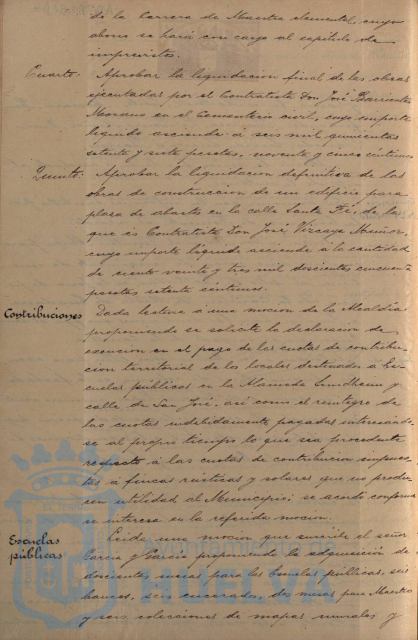 de la Carrera de Maestra elemental, cuyo
abono se hará con cargo al capítulo de
imprevistos.
Cuarto. Aprobar la liquidación final de las obras
ejecutadas por el Contratista Don José Barrientos
Moreno en el Cementerio civil, cuyo importe
líquido asciende á seis mil quinientas
setenta y siete pesetas, noventa y cinco céntimos
Quinto. Aprobar la liquidación definitiva de las
obras de construcción de un edificio para
plaza de abastos en la calle Santa Fé, de las
que es Contratista Don José Vizcaya Muñoz,
cuyo importe líquido asciende á la cantidad
de ciento veinte y tres mil doscientas cincuenta
pesetas setenta céntimos.
Contribuciones Dada lectura á una moción de la Alcaldía
proponiendo se solicite la declaración de
exención en el pago de las cuotas de contribu-
ción territorial de los locales destinados á Es-
cuelas públicas en la Alameda Sundheim y
calle de San José, así como el reintegro de
las cuotas indebidamente pagadas interesándo-
se al propio tiempo lo que sea procedente
respecto á las cuotas de contribución impues-
tas á fincas rústicas y solares que no produ-
cen utilidad al Municipio; se acordó conforme
se interesa en la referida moción.
Escuelas públicas Leída una moción que suscribe el señor
García y García proponiendo la adquisición de
doscientas mesas para las Escuelas públicas, seis
bancos, seis encerados, dos mesas para Maestro
y seis colecciones de mapas murales y
HUELVA